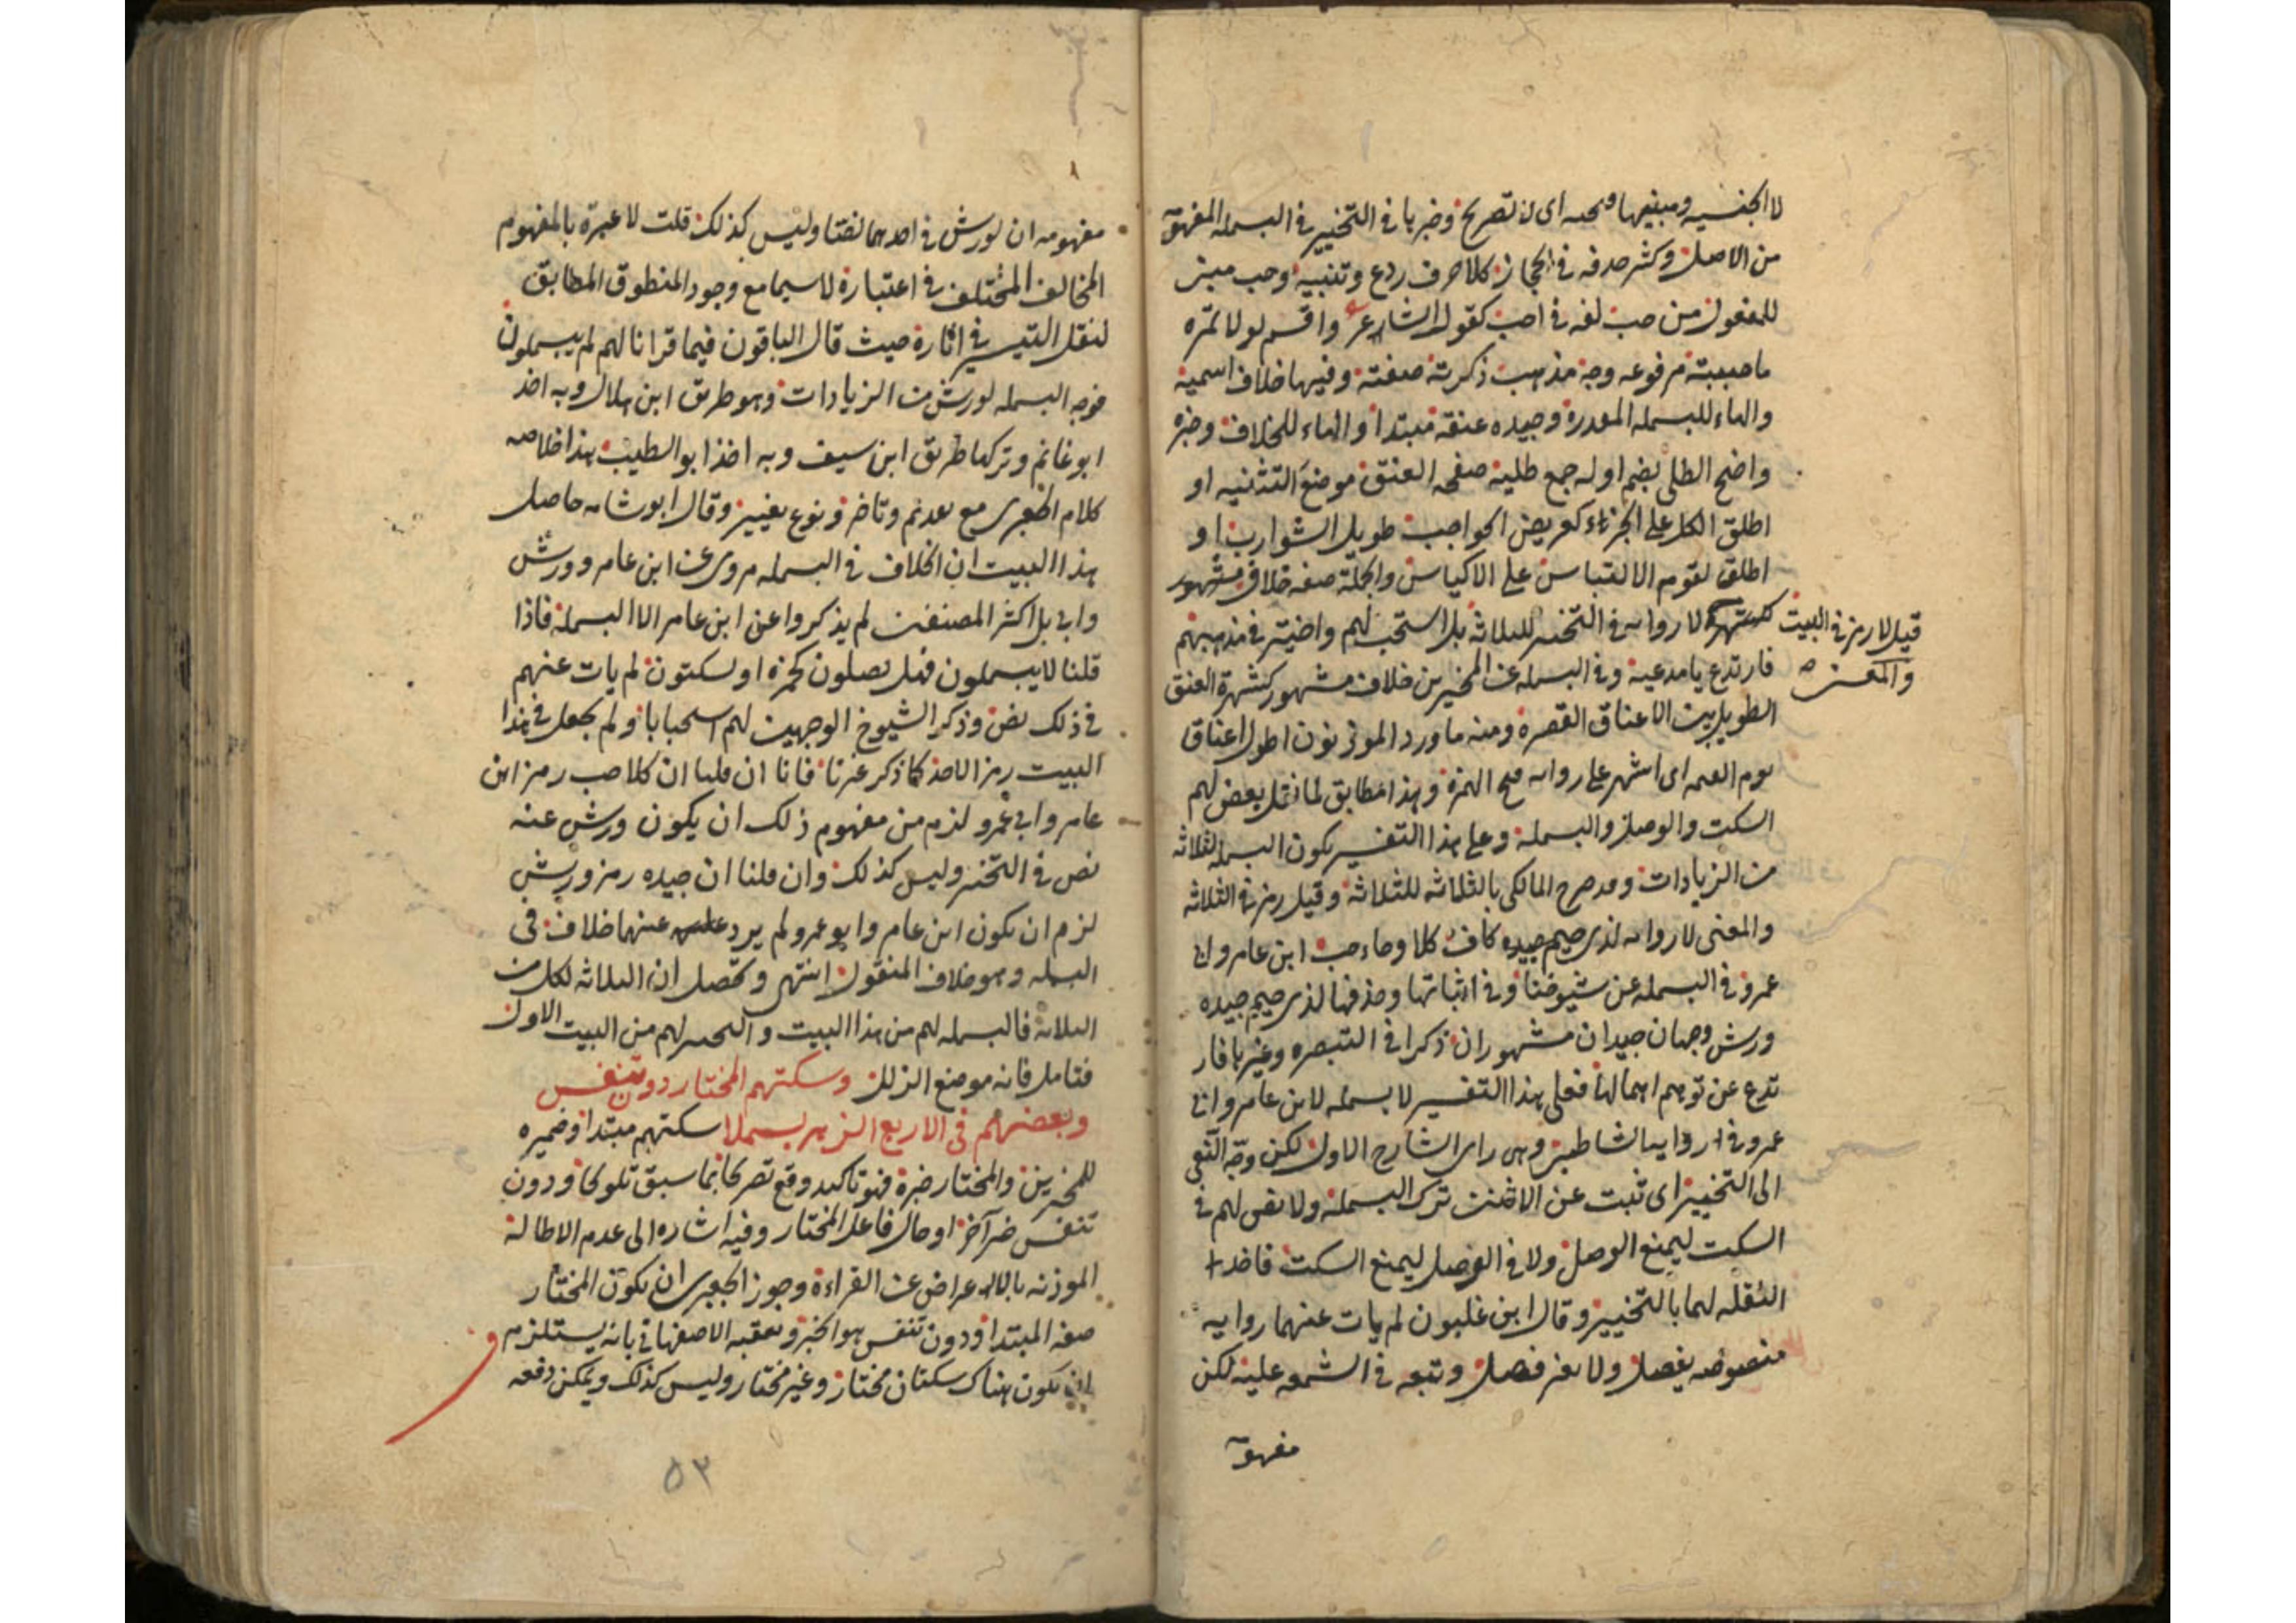 لا الجنسيه ومبنيها فتحه اى لا تصريح وخبرها فى التخيير فى البسمله المفهوم
من الاصل وكثر حذفه فى الحجاز كلا حرف ردع وتنبيه وحب مبنى
للمفعول من حب لغه فى احب كقول الشارع واقسم لولا تمره
ما حببته مرفوعه وجه مذهب ذكرته صفته وفيها خلاف اسميه
والهاء للبسمله المقدرة وجيده عنقه مبتدا والهاء للخلاف وخبره
واضح الطلى بضم اوله جمع طليه صفحه العنق موضع التثنيه او
اطلق الكل على الجزء كعريض الحواجب طويل الشوارب او
اطلق لقوم الالتباس على الاكياس والجملة صفه خلاف مشهور
قيل لا رمز فى البيت والمعنى
كشهرة لا روايه فى التخيير للثلاثه بل استحب لهم واختير فى مذهبهم
فارتدع يا مدعيه وفى البسمله عن المخيرين خلاف مشهور كشهرة العنق
الطويل بين الاعناق القصره ومنه ما ورد المؤذنون اطول اعناق
يوم القيمه اى اشهر على روايه فتح الهمزة وهذا مطابق لما نقل بعض لهم
السكت والوصل والبسملة وعلى هذا التفسير يكون البسمله لثلاثه
من الزيادات وقد صرح المالكى بالثلاثه للثلاثة وقيل رمز فى الثلاثه
والمعنى لا روايه لذى جيم جيده كاف كلا وحاء حب ابن عامر وابى
عمرو فى البسمله عن شيوخنا وفى اثباتها وحذفها لذى جيم جيده
ورش وجهان جيدان مشهوران ذكرا فى التبصره وغيرها فار
تدع عن توهم اهمالها فعلى هذا التفسير لا بسمله لابن عامر وابى
عمرو فى الشاطبيه وهى راى الشارح الاول لكن وجه النفى
الى التخيير اى ثبت عن الاثنين ترك البسملة ولا نص لهم فى
السكت ليمنع الوصل ولا فى الوصل ليمنع السكت فاخذ
النقله لهما بالتخيير وقال ابن غلبون لم يات عنهما روايه
منصوصه بفصل ولا بغير فصل وتبعه فى الشمعه عليه لكن
مفهومه
مفهومه ان لورش فى احدهما نصا وليس كذلك قلت لا عبرة بالمفهوم
المخالف المختلف فى اعتباره لا سيما مع وجود المنطوق المطابق
لنقل التيسير فى اثاره حيث قال الباقون فيما قرانا لهم لم يبسملون
فوجه البسمله لورش من الزيادات وهو طريق ابن هلال وبه اخذ
ابو غانم وتركها طريق ابن سيف وبه اخذ ابو الطيب هذا خلاصه
كلام الجعبرى مع تقديم وتاخير ونوع تغيير وقال ابو شامه حاصل
هذا البيت ان الخلاف فى البسمله مروى عن ابن عامر وورش
وابى بل اكثر المصنفين لم يذكروا عن ابن عامر الا البسملة فاذا
قلنا لا يبسملون فهل يصلون كحمزه او يسكتون لم يات عنهم
فى ذلك نص وذكر الشيوخ الوجهين لهم استحبابا ولم نجعل فى هذا
البيت رمز الاحد كما ذكر غيرنا فانا ان قلنا ان كلا حب رمز ابن
عامر وابى عمرو لزم من مفهوم ذلك ان يكون ورش عنه
نص فى التخيير وليس كذلك وان قلنا ان جيده رمز ورش
لزم ان يكون ابن عامر وابو عمرو لم يرد عنهما خلاف فى
البسمله وهو خلاف المنقول انتهى وتحصل ان الثلاثه لكل من
الثلاثه فالبسمله لهم من هذا البيت والتخيير لهم من البيت الاول
فتامل فانه موضع الزلل وسكتهم المختار دون تنفس
وبعضهم فى الاربع الزهر بسملا سكتهم مبتدا وضميره
للمخيرين والمختار خبره فهو تاكيد وقع تصريحا بما سبق تلويحا ودون
تنفس خبر آخر او حال فاعل المختار وفيه اشاره الى عدم الاطالة
الموذنه بالاعراض عن القراءة وجوز الجعبرى ان يكون المختار
صفه المبتدا ودون تنفس هو الخبر وتعقبه الاصفهانى بانه يستلزم
ان يكون هناك سكتان مختار وغير مختار وليس كذلك ويمكن دفعه
٥٣